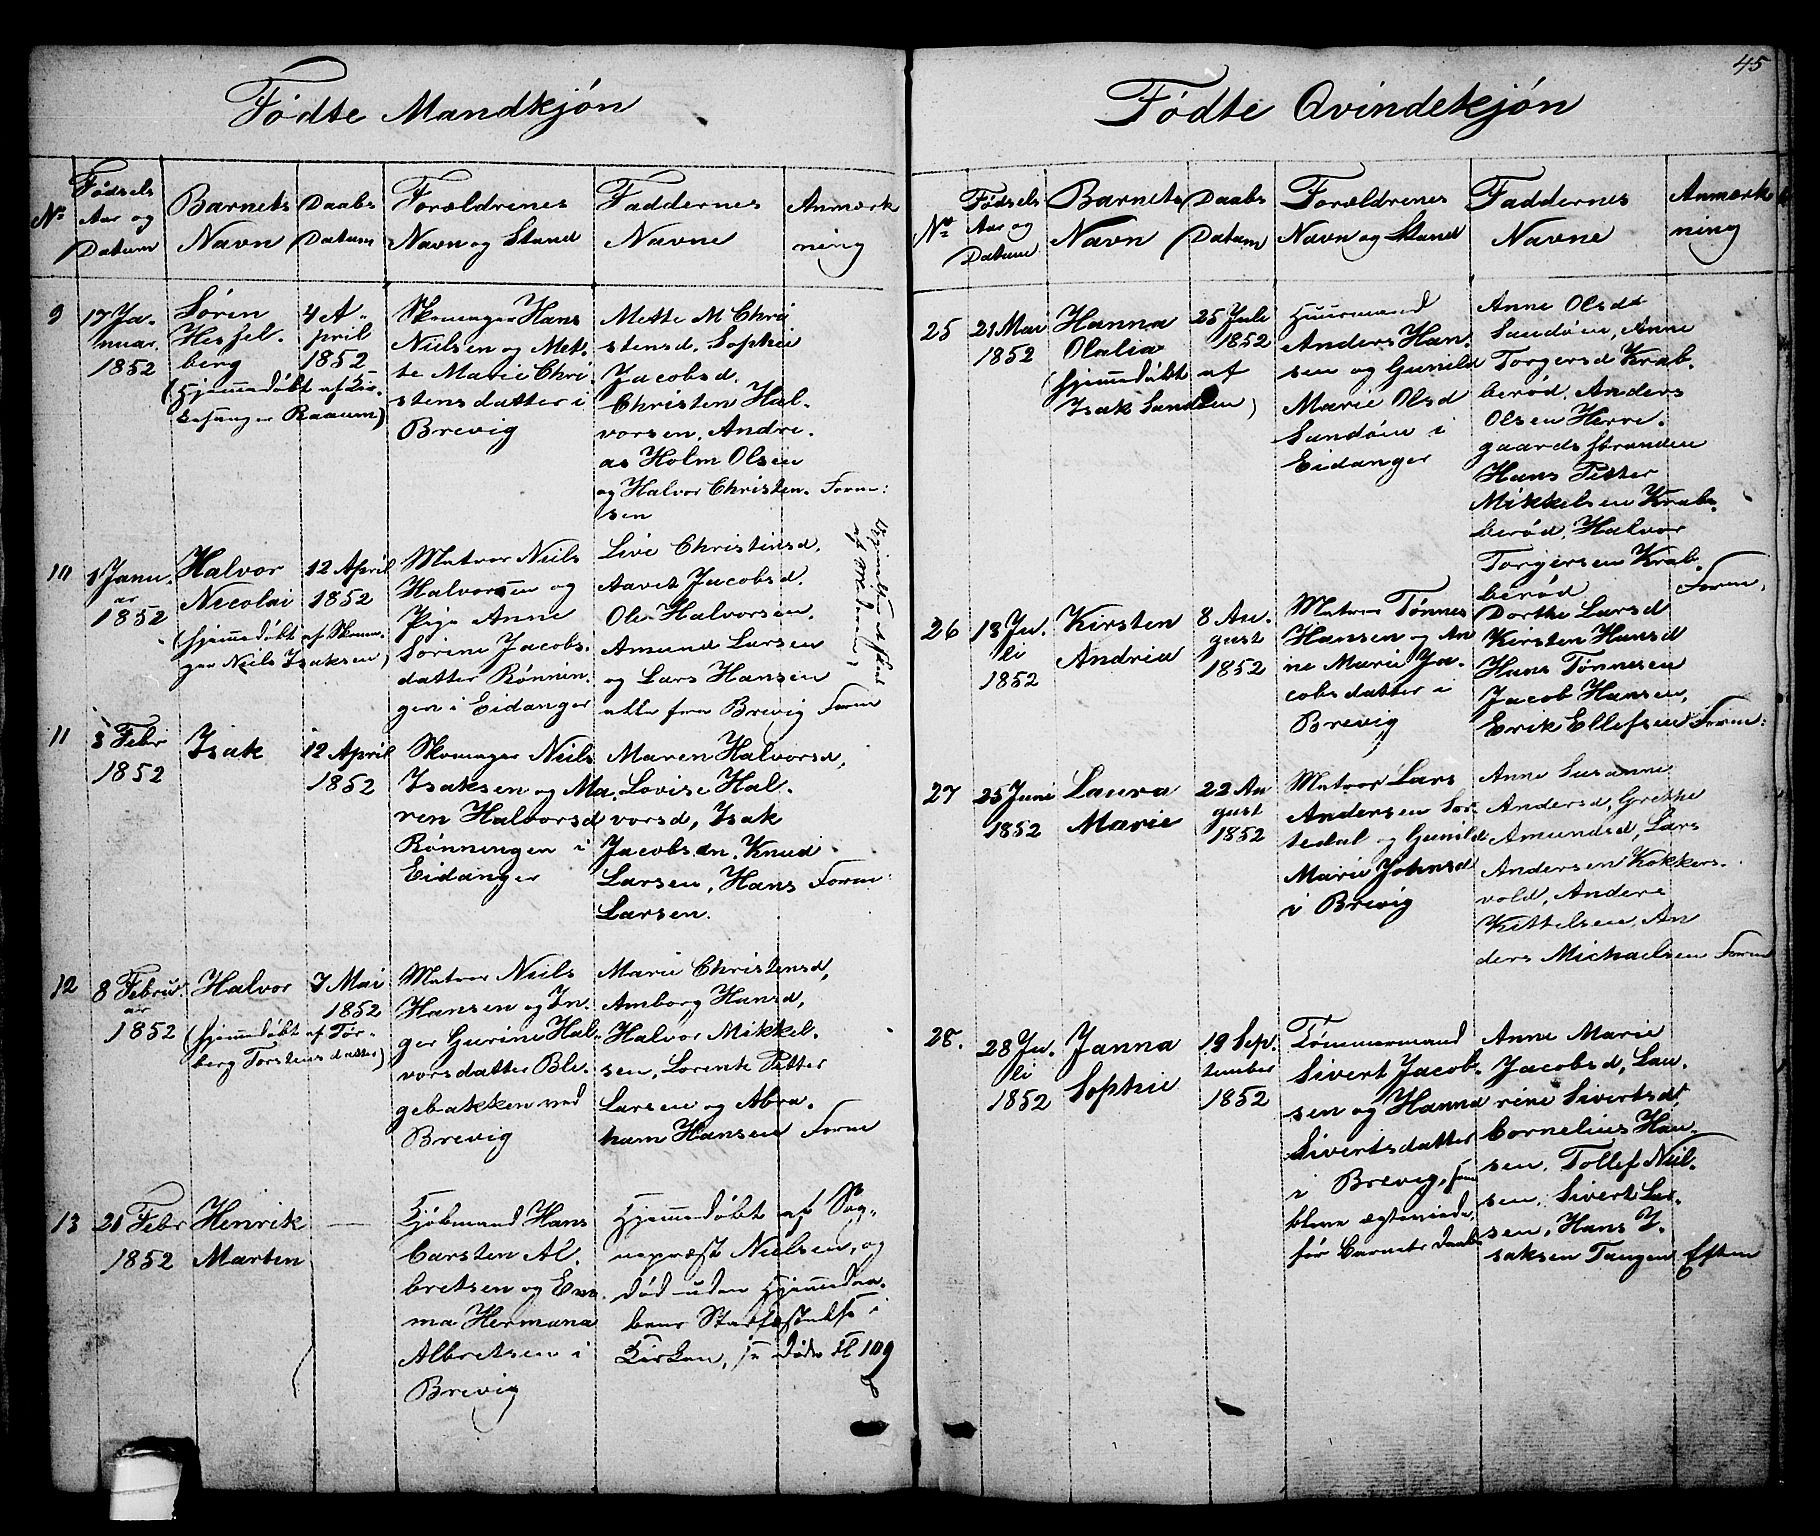 45
Fødte Mandkjøn
No
Fødsels
Aar og
Datum
Barnets
Navn
Daabs
Datum
Forældrenes
Navn og Stand
Faddernes
Navne
Anmærk
ning
9
17 Ja-
nuar
1852
Søren
Hessel-
berg
4 A-
pril
1852
(Hjemmedøbt af
Raaum)
Skomager Hans
Nielsen og Met-
te Marie Chri-
stensdatter i
Brevig
Mette M Chri
stensd. Sophie
Jacobsd.
Christen Hal-
vorsen. Andre-
as Holm Olsen
og Halvor Christen-
sen
Form:
10
1 Janu-
ar
1852
Halvor
Nicolai
12 April
1852
(hjemmedøbt af Skoma-
ger Niels Isaksen)
Matros Niels
Halvorsen og
Pige Anne
Sørine Jacobs-
datter Rønnin-
gen i Eidanger
Live Christensd,
Aavet Jacobsd.
Ole Halvorsen.
Amund Larsen
og Lars Hansen
alle fra Brevig
Form
11
3 Febr
1852
Isak
12 April
1852
Skomager Niels
Isaksen og Ma-
ren Halvorsd
Rønningen i
Eidanger
Maren Halvorsd,
Lovise Hal-
vorsd, Isak
Jacobsen. Knud
Larsen, Hans
Larsen.
Form:
12
8 Febru-
ar
1852
Halvor
7 Mai
1852
(hjemmedøbt af Tor-
berg Torstensdatter)
Matros Niels
Hansen og In-
ger Gurine Hal-
vorsdatter Ble-
gebakken ved
Brevig
Marie Christensd,
Amborg Hansd,
Halvor Mikkel-
sen, Lorents Petter
Larsen og Abra-
ham Hansen
Form
13
21 Febr
1852
Henrik
Marten
—
Kjøbmand Hans
Carsten Al-
bretsen og Em-
ma Hermana
Albretsen i
Brevig
Hjemmedøbt af Sog-
nepræst Nielsen, og
død uden Hjemmedaa-
bens Stadfæstelse i
Kirken, se Døde Fl 109
8
Fødte Qvindekjøn
No
Fødsels
Aar og
Datum
Barnets
Navn
Daabs
Datum
Forældrenes
Navn og Stand
Faddernes
Navne
Anmærk
ning
25
21 Mai
1852
Hanna
Olalia
25 Juli
1852
(hjemmedøbt af
Isak Sandøen)
Huusmand
Anders Han-
sen og Gunild
Marie Olsd
Sandøen i
Eidanger
Anne Olsdt
Sandøen, Anne
Torgersd Krab-
berød. Anders
Olsen Herre-
gaardsstranden
Hans Petter
Mikkelsen Krab-
berød. Halvor
Torgersen Krab-
berød
Form.
26
18 Ju-
li
1852
Kirsten
Andria
8 Au-
gust
1852
Matros Tønnes
Hansen og An
ne Marie Ja-
cobsdatter i
Brevig
Dorthe Larsd
Kirsten Hansd
Hans Tønnesen
Jacob Hansen,
Erik Ellefsen
Form:
27
25 Juni
1852
Laura
Marie
22 Au
gust
1852
Matros Lars
Andersen Sor-
tedal og Gunild
Marie Johnsd
i Brevig
Anne Susanne
Andersd, Grethe
Amundsd, Lars
Andersen Kokkers-
vold, Anders
Kittelsen, An
ders Michaelsen
Form
28.
28 Ju-
li
1852
Janna
Sophie
19 Sep-
tember
1852
Tømmermand
Sivert Jacob-
sen og Hanna
Sivertsdatter
i Brevig, som
bleve ægteviede
før Barnets Daab.
Anne Marie
Jacobsd, Lau-
rine Sivertsdt
Cornelius Han-
sen, Tollef Niel-
sen, Sivert Lar-
sen, Hans I-
saksen Tangen
Eftm